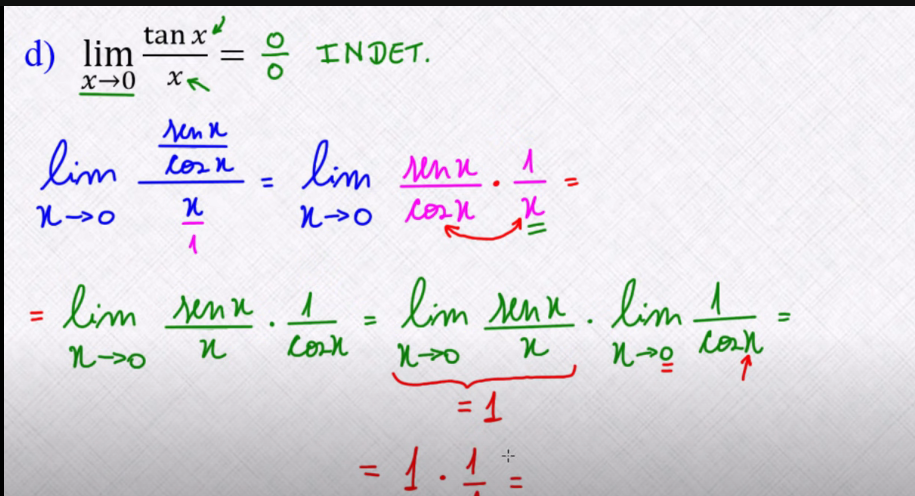 d) lim x→0 tan x / x = 0/0 INDET.
lim x→0 (sen x / cos x) / (x / 1) = lim x→0 sen x / cos x · 1 / x =
= lim x→0 sen x / x · 1 / cos x = lim x→0 sen x / x · lim x→0 1 / cos x =
= 1
= 1 · 1 / 1 =